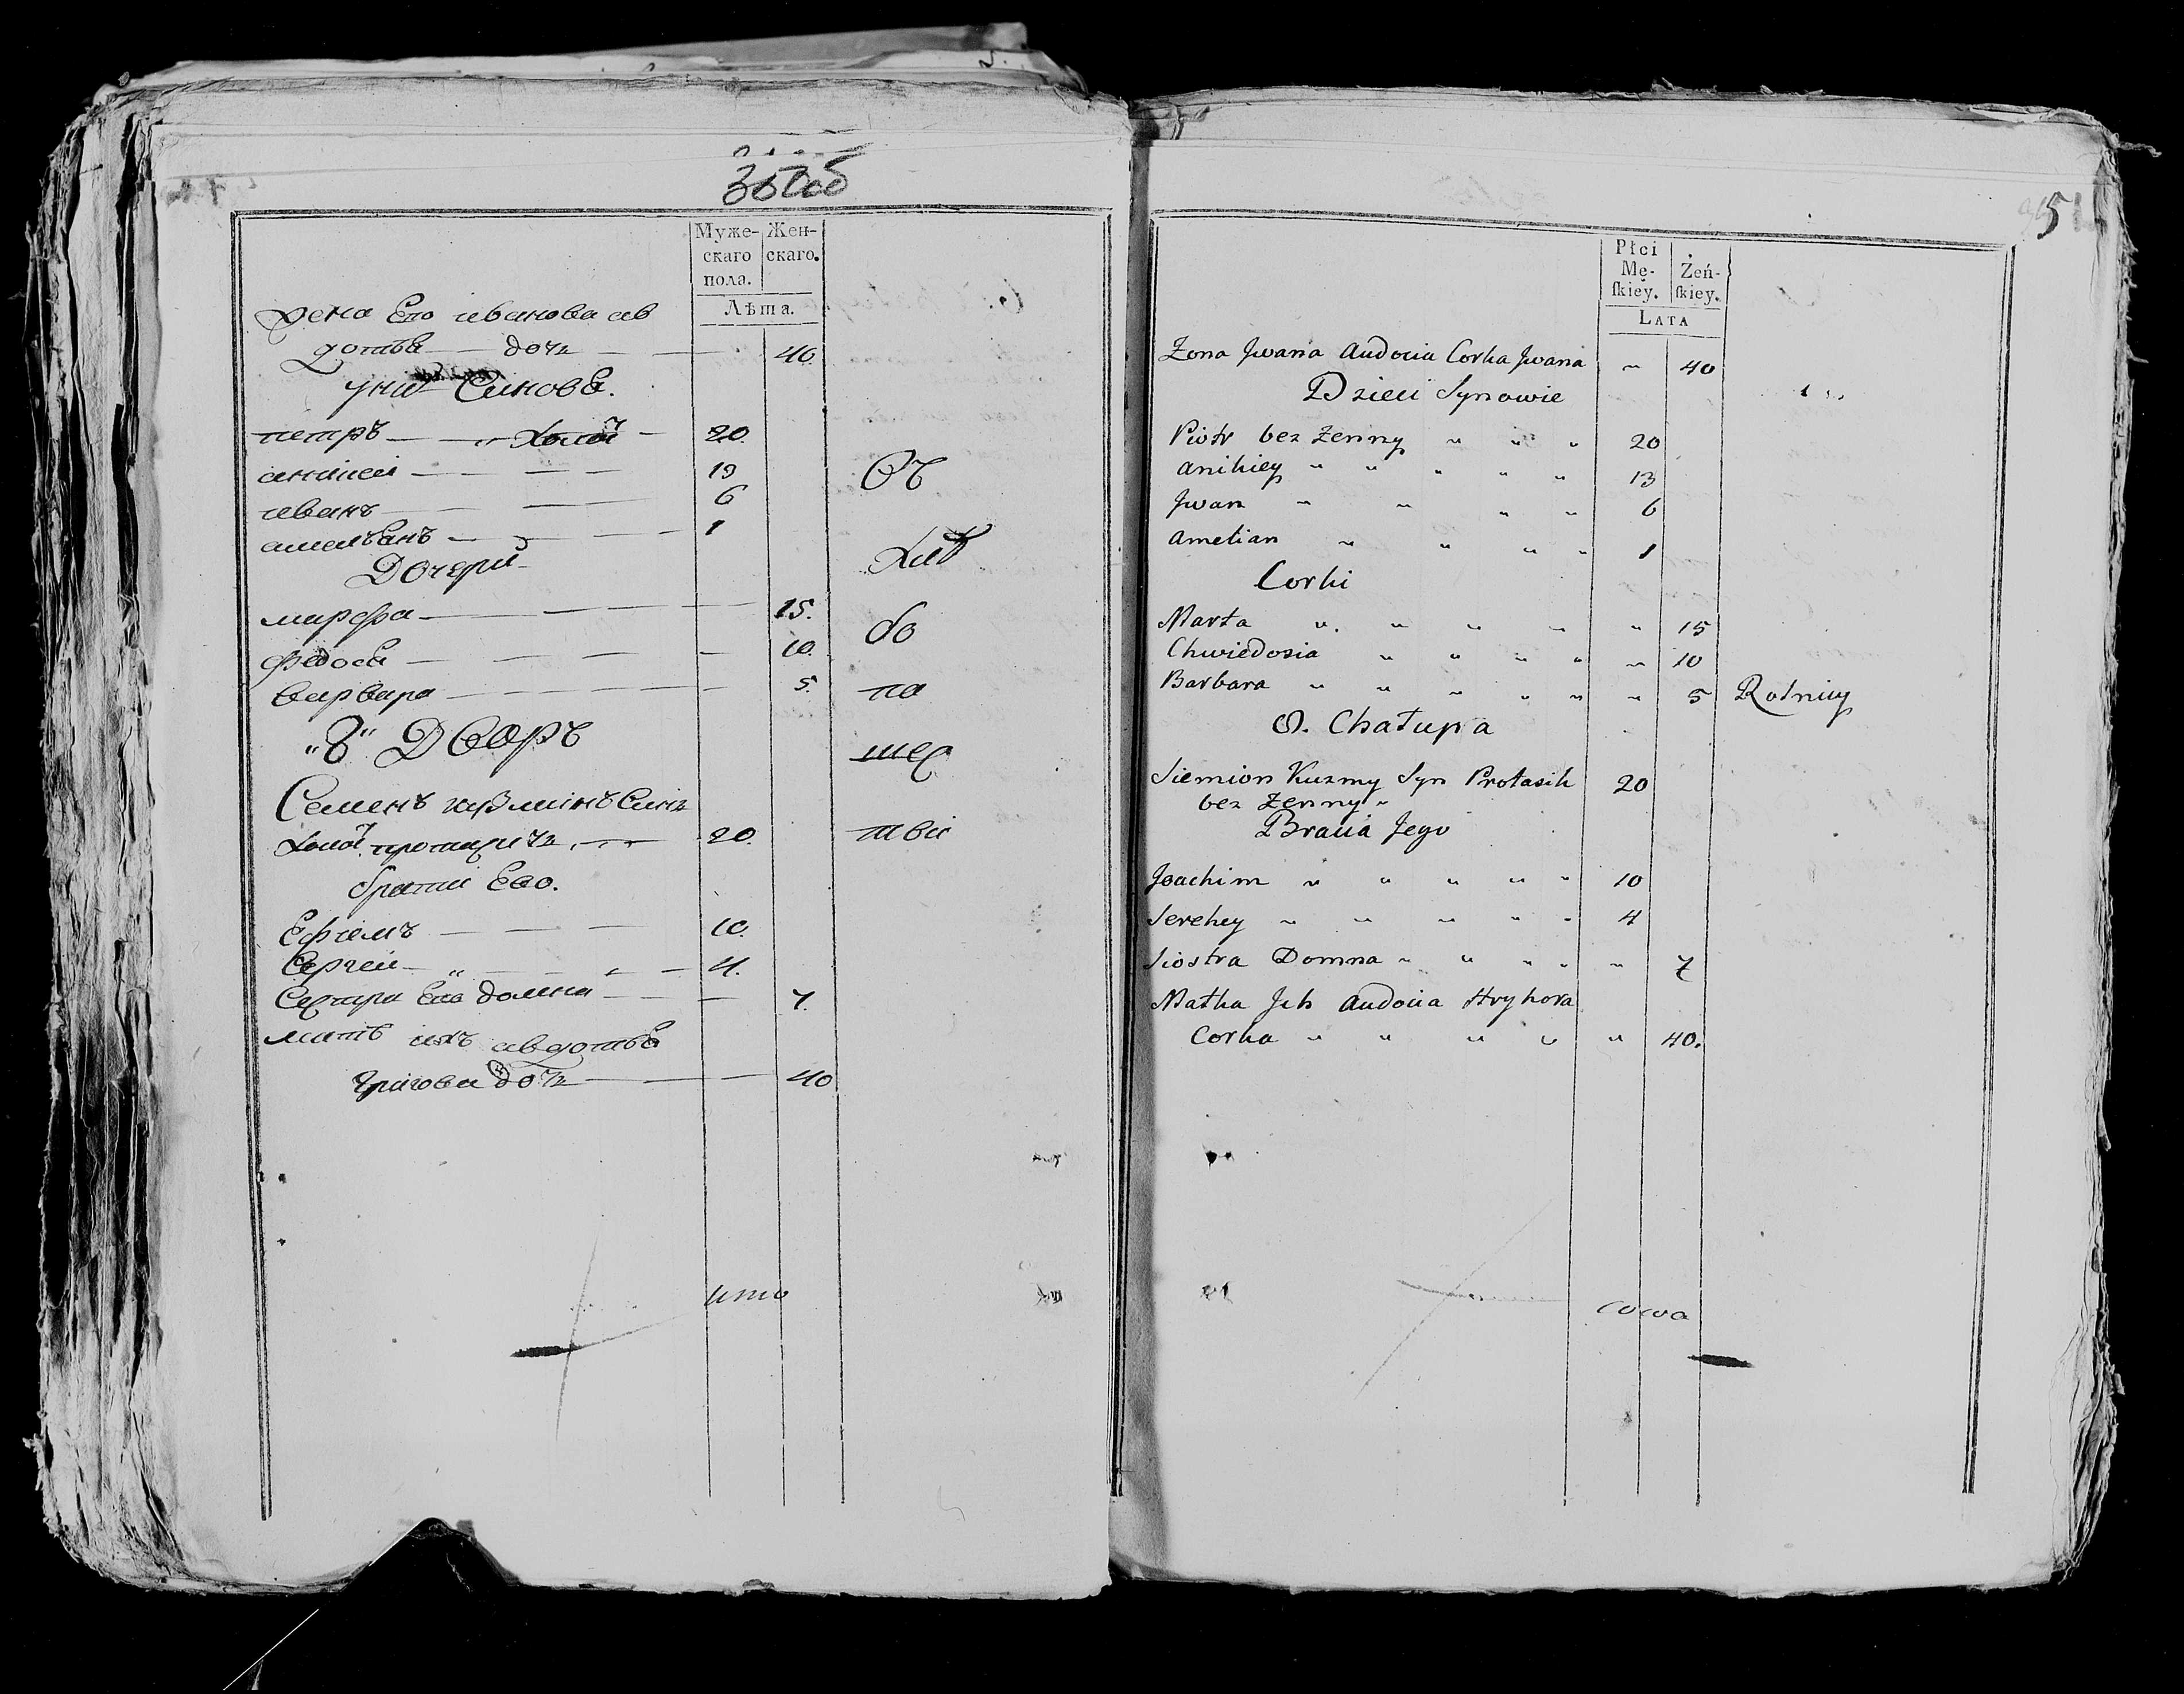 350об
Муже-
скаго
пола.
Жен-
скаго.
Лѣта.
жена Его иванова ав
дотья — доч — 40
у них Синовя.
петръ — холо — 20.
аникеи — 13
иванъ — 6
амельянъ — 1
Дочери
марфа — 15.
федося — 10.
варвара — 5.
"8" Дворъ
Семенъ кузминъ Синъ
холо — 20.
братья Ево.
Ефимъ — 10.
Сергеи — 4.
Сестра Ево домна — 7.
мать ихъ авдотья
григова доч — 40
Хлѣ
бо
па
ше
ства
351
Płci
Mę-
skiey.
Żeń-
skiey.
LATA
Zona Jwana Audocia Corka Jwana " 40
Dzieci Synowie
Piotr bez Zenny " " " 20
Anikiey " " " " " 13
Jwan " " " " 6
Amelian " " " " 1
Corki
Marta " " " " " 15
Chwiedosia " " " " " 10
Barbara " " " " " " 5 Rolnicy
8. Chałupa
Siemion Kuzmy Syn Protasik 20
bez Zenny "
Bracia Jego
Joachim " " " " " 10
Serehey " " " " " 4
Siostra Domna " " " " " 7
Matka Jch Audocia Hryhora
Corka " " " " " 40.